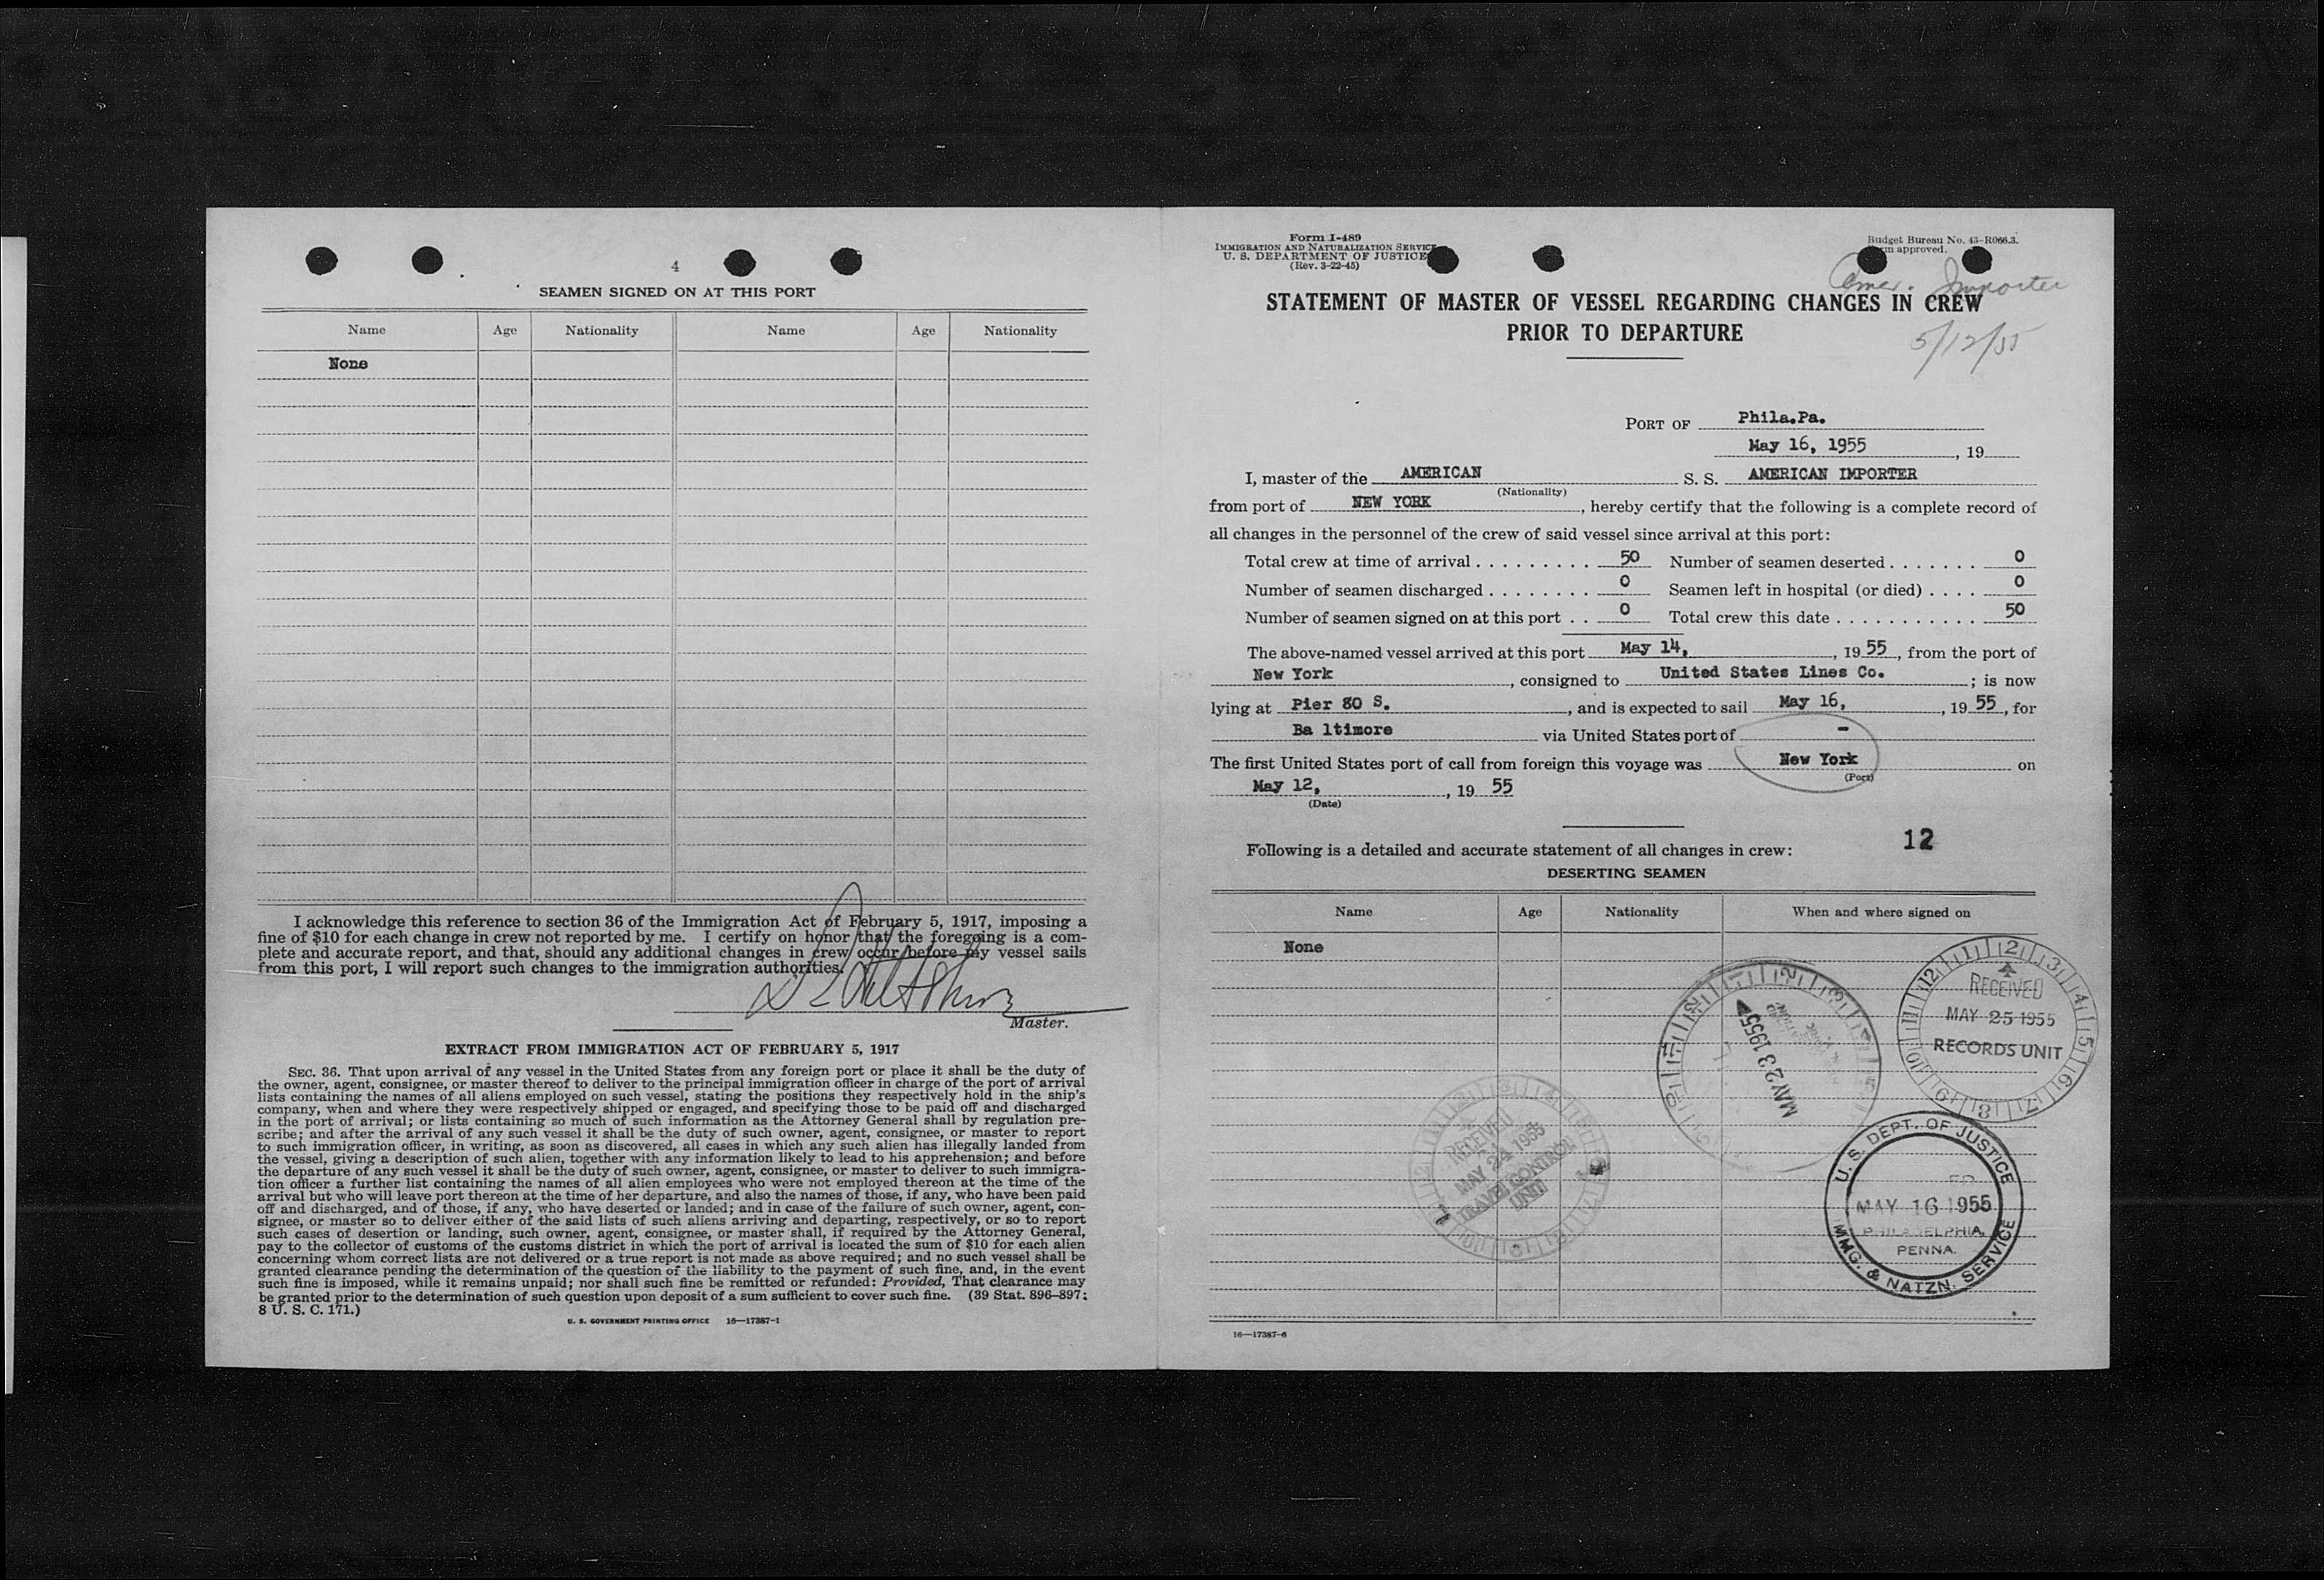 4
SEAMEN SIGNED ON AT THIS PORT
Name Age Nationality Name Age Nationality
None
I acknowledge this reference to section 36 of the Immigration Act of February 5, 1917, imposing a
fine of $10 for each change in crew not reported by me. I certify on honor that the foregoing is a com-
plete and accurate report, and that, should any additional changes in crew occur before my vessel sails
from this port, I will report such changes to the immigration authorities.
Master.
EXTRACT FROM IMMIGRATION ACT OF FEBRUARY 5, 1917
SEC. 36. That upon arrival of any vessel in the United States from any foreign port or place it shall be the duty of
the owner, agent, consignee, or master thereof to deliver to the principal immigration officer in charge of the port of arrival
lists containing the names of all aliens employed on such vessel, stating the positions they respectively hold in the ship's
company, when and where they were respectively shipped or engaged, and specifying those to be paid off and discharged
in the port of arrival; or lists containing so much of such information as the Attorney General shall by regulation pre-
scribe; and after the arrival of any such vessel it shall be the duty of such owner, agent, consignee, or master to report
to such immigration officer, in writing, as soon as discovered, all cases in which any such alien has illegally landed from
the vessel, giving a description of such alien, together with any information likely to lead to his apprehension; and before
the departure of any such vessel it shall be the duty of such owner, agent, consignee, or master to deliver to such immigra-
tion officer a further list containing the names of all alien employees who were not employed thereon at the time of the
arrival but who will leave port thereon at the time of her departure, and also the names of those, if any, who have been paid
off and discharged, and of those, if any, who have deserted or landed; and in case of the failure of such owner, agent, con-
signee, or master so to deliver either of the said lists of such aliens arriving and departing, respectively, or so to report
such cases of desertion or landing, such owner, agent, consignee, or master shall, if required by the Attorney General,
pay to the collector of customs of the customs district in which the port of arrival is located the sum of $10 for each alien
concerning whom correct lists are not delivered or a true report is not made as above required; and no such vessel shall be
granted clearance pending the determination of the question of the liability to the payment of such fine, and, in the event
such fine is imposed, while it remains unpaid; nor shall such fine be remitted or refunded: Provided, That clearance may
be granted prior to the determination of such question upon deposit of a sum sufficient to cover such fine. (39 Stat. 896–897;
8 U. S. C. 171.)
U. S. GOVERNMENT PRINTING OFFICE 16—17387-1
Form I-489
IMMIGRATION AND NATURALIZATION SERVICE
U. S. DEPARTMENT OF JUSTICE
(Rev. 3-22-45)
Budget Bureau No. 43-R066.3.
approved.
Amer. Importer
STATEMENT OF MASTER OF VESSEL REGARDING CHANGES IN CREW
PRIOR TO DEPARTURE
5/12/55
PORT OF Phila.Pa.
May 16, 1955, 19
I, master of the AMERICAN S. S. AMERICAN IMPORTER
(Nationality)
from port of NEW YORK, hereby certify that the following is a complete record of
all changes in the personnel of the crew of said vessel since arrival at this port:
Total crew at time of arrival 50 Number of seamen deserted 0
Number of seamen discharged 0 Seamen left in hospital (or died) 0
Number of seamen signed on at this port 0 Total crew this date 50
The above-named vessel arrived at this port May 14, , 19 55, from the port of
New York, consigned to United States Lines Co. ; is now
lying at Pier 80 S. , and is expected to sail May 16, , 19 55, for
Ba ltimore via United States port of -
The first United States port of call from foreign this voyage was New York on
(Port)
May 12, , 19 55
(Date)
12
Following is a detailed and accurate statement of all changes in crew:
DESERTING SEAMEN
Name Age Nationality When and where signed on
None
RECEIVED
MAY 25 1955
RECORDS UNIT
MAY 23 1955
RECEIVED
MAY 24 1955
TRAVEL CONTROL
UNIT
U. S. DEPT. OF JUSTICE
MAY 16 1955
PHILADELPHIA,
PENNA.
IMMG. & NATZN. SERVICE
16—17387-6